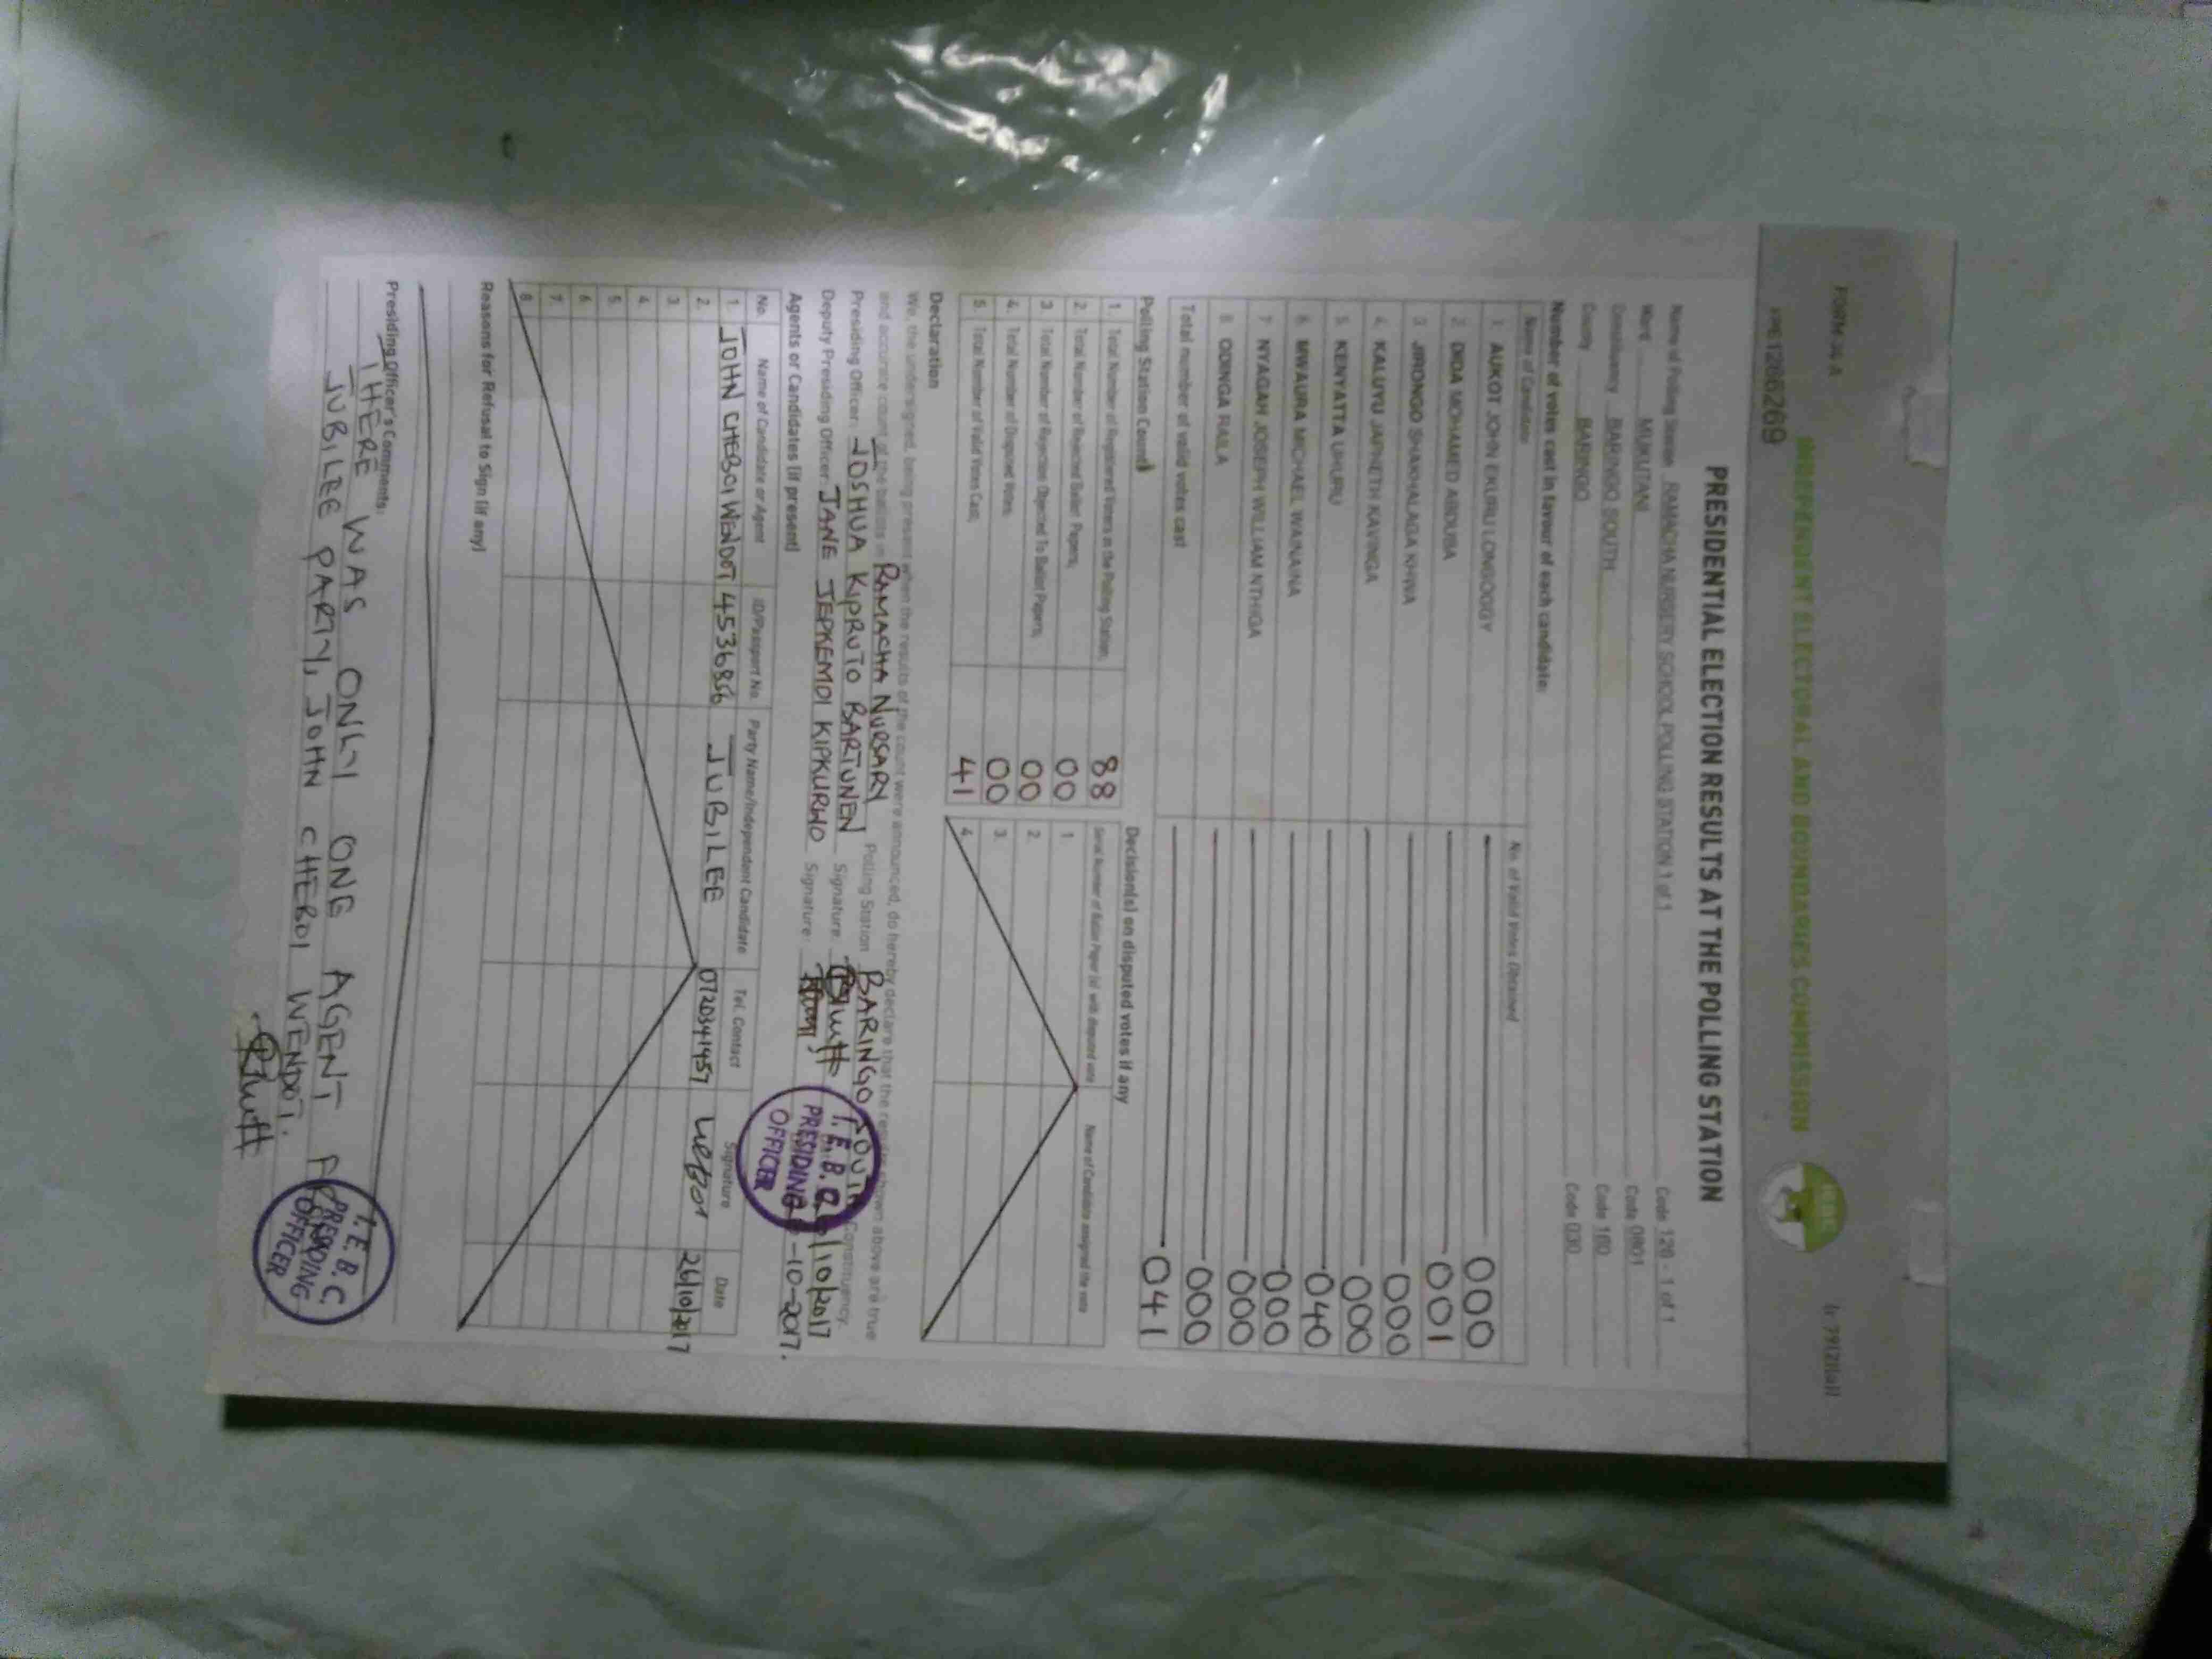 FORM 34 A
INDEPENDENT ELECTORAL AND BOUNDARIES COMMISSION
IEBC
PRESIDENTIAL ELECTION RESULTS AT THE POLLING STATION
Name of Polling Station RAMACHA NURSERY SCHOOL POLLING STATION 1 of 1 Code 120 - 1 of 1
Ward MUKUTANI Code 0801
Constituency BARINGO SOUTH Code 160
County BARINGO Code 030
Number of votes cast in favour of each candidate:
Name of Candidate No. of Valid Votes Obtained
1. AUKOT JOHN EKURU LONGOGGY 000
2. DIDA MOHAMED ABDUBA 001
3. JIRONGO SHAKHALAGA KHWA 000
4. KALUYU JAPHETH KAVINGA 000
5. KENYATTA UHURU 040
6. MWAURA MICHAEL WAINAINA 000
7. NYAGAH JOSEPH WILLIAM NTHIGA 000
8. ODINGA RAILA 000
Total number of valid votes cast 041
Polling Station Counts
1. Total Number of Registered Voters in the Polling Station; 88
2. Total Number of Rejected Ballot Papers; 00
3. Total Number of Rejection Objected To Ballot Papers; 00
4. Total Number of Disputed Votes; 00
5. Total Number of Valid Votes Cast; 41
Decision(s) on disputed votes if any
Serial Number of Ballot Paper (s) with disputed vote Name of Candidate assigned the vote
1.
2.
3.
4.
Declaration
We, the undersigned, being present when the results of the count were announced, do hereby declare that the results shown above are true
and accurate count of the ballots in RAMACHA NURSARY Polling Station BARINGO SOUTH Constituency.
Presiding Officer: JOSHUA KIPRUTO BARTUNEN Signature: /10/2017
Deputy Presiding Officer: JANE JEPKEMOI KIPKURWO Signature: -10-2017.
I.E.B.C
PRESIDING
OFFICER
Agents or Candidates (if present)
No. Name of Candidate or Agent ID/Passport No. Party Name/Independent Candidate Tel. Contact Signature Date
1. JOHN CHEBOI WENDOT 14536856 JUBILEE 0720341957 26/10/2017
2.
3.
4.
5.
6.
7.
8.
Reasons for Refusal to Sign (if any)
Presiding Officer's Comments:
THERE WAS ONLY ONE AGENT
JUBILEE PARTY, JOHN CHEBOI WENDOT.
I.E.B.C
PRESIDING
OFFICER